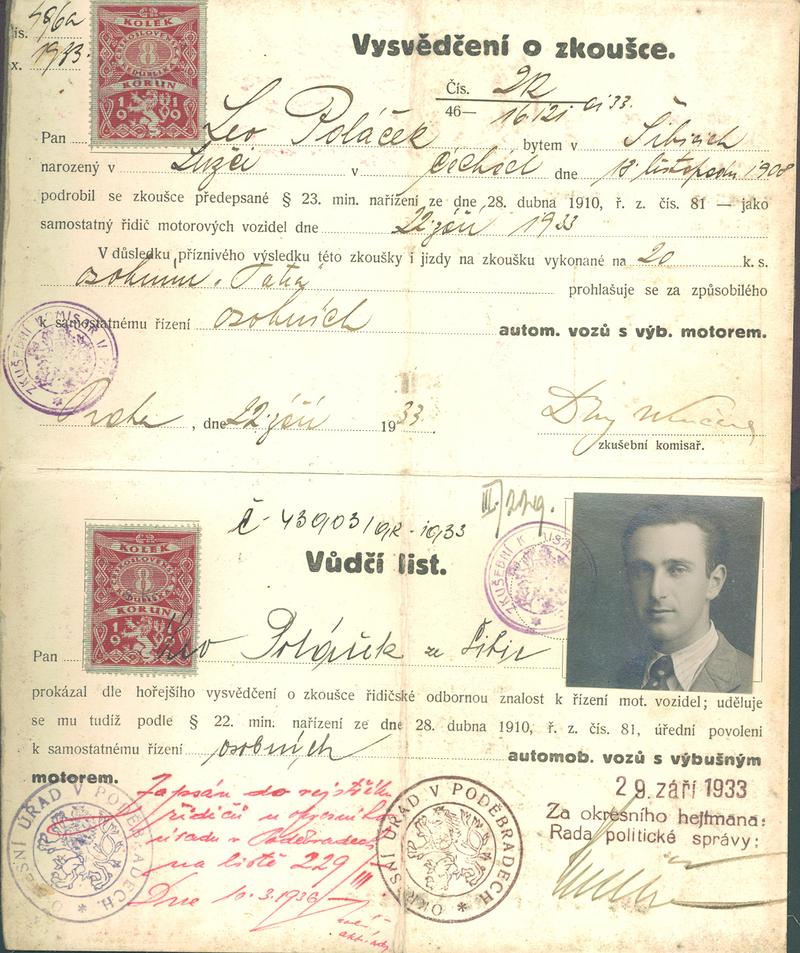 čis. 486a
ex. 1933.
KOLEK
8
KORUN
1919
Vysvědčení o zkoušce.
Čís.
46— 16121 ai 33.
Pan Leo Poláček bytem v
narozený v v Čechách dne 18 listopadu 1908
podrobil se zkoušce předepsané § 23. min. nařízení ze dne 28. dubna 1910, ř. z. čís. 81 — jako
samostatný řidič motorových vozidel dne 22. září 1933
V důsledku příznivého výsledku této zkoušky i jízdy na zkoušku vykonané na 20 k. s.
osobním „Tatra" prohlašuje se za způsobilého
k samostatnému řízení osobních autom. vozů s výb. motorem.
ZKUŠEBNÍ KOMISAŘ V
Praha, dne 22. září 1933.
zkušební komisař.
III/229.
č. 43903/ 1933
KOLEK
8
KORUN
19
Vůdčí list.
ZKUŠEBNÍ KOMISAŘ
Pan Leo Poláček ze
prokázal dle hořejšího vysvědčení o zkoušce řidičské odbornou znalost k řízení mot. vozidel; uděluje
se mu tudíž podle § 22. min. nařízení ze dne 28. dubna 1910, ř. z. čís. 81, úřední povolení
k samostatnému řízení osobních automob. vozů s výbušným
motorem.
29. září 1933
Za okresního hejtmana:
Rada politické správy:
Zapsán do rejstříku
řidičů u okresního
úřadu v Poděbradech
na listě 229/III
Dne 10.3.1936
OKRESNÍ ÚŘAD V PODĚBRADECH
OKRESNÍ ÚŘAD V PODĚBRADECH